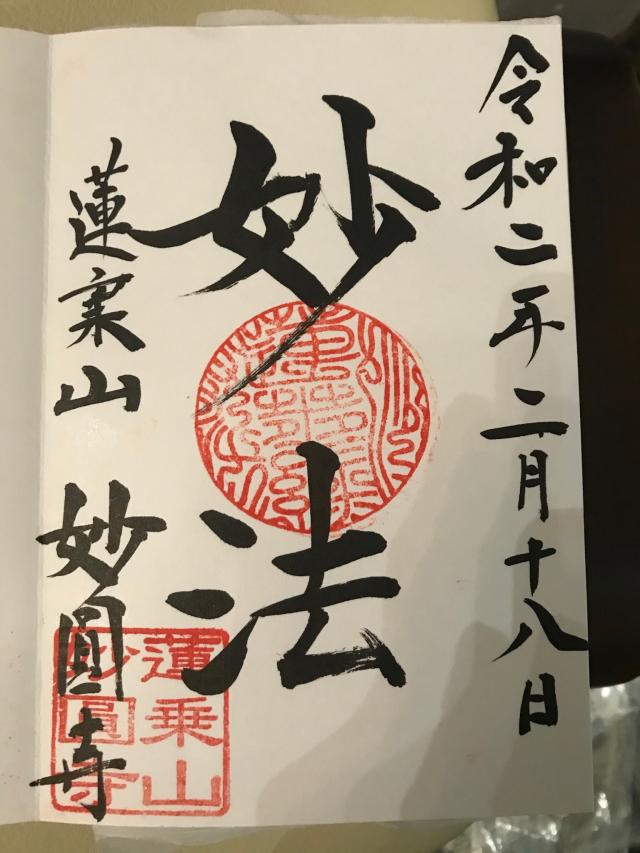 令和二年二月十八日
妙法
蓮乗山 妙圓寺
蓮乗山
妙圓寺